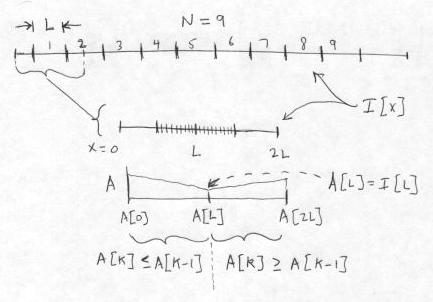 L N = 9
1 2 3 4 5 6 7 8 9
I[x]
x=0 L 2L
A A[L]=I[L]
A[0] A[L] A[2L]
A[K] ≤ A[K-1] A[K] ≥ A[K-1]